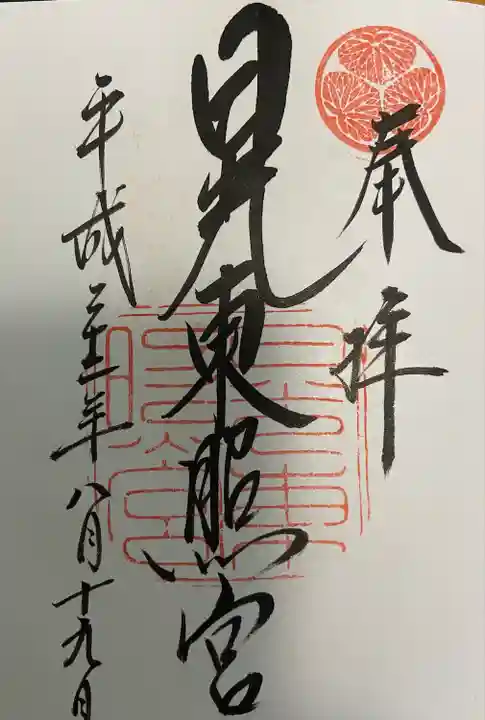 奉拝
日光東照宮
平成二十二年八月十九日